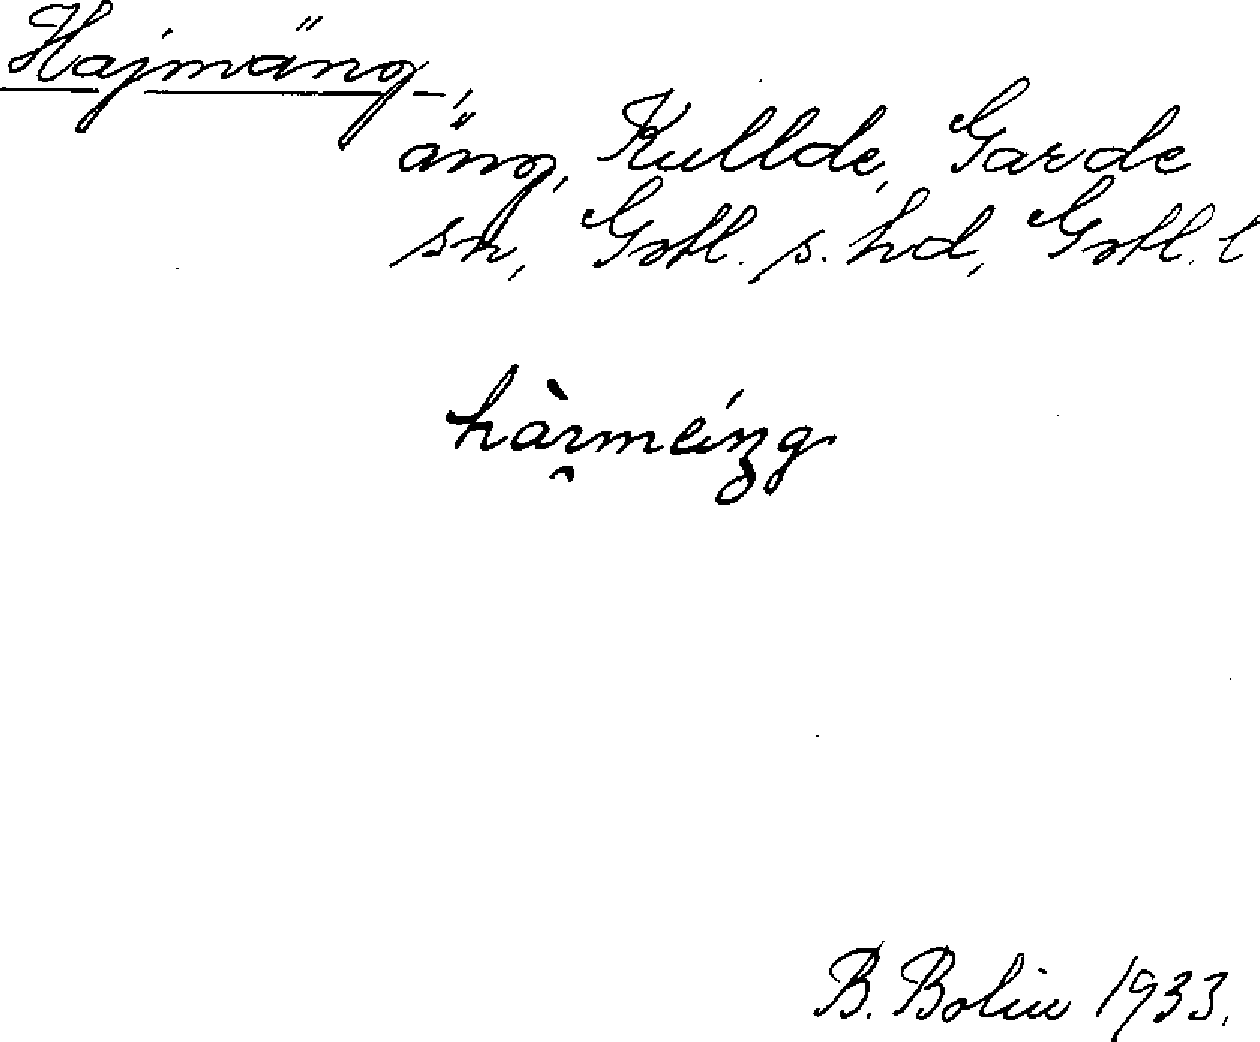 Hajmäng,
äng, Kullde, Garde
sn, Gotl. s. hd, Gotl. l
B. Bolin 1933.